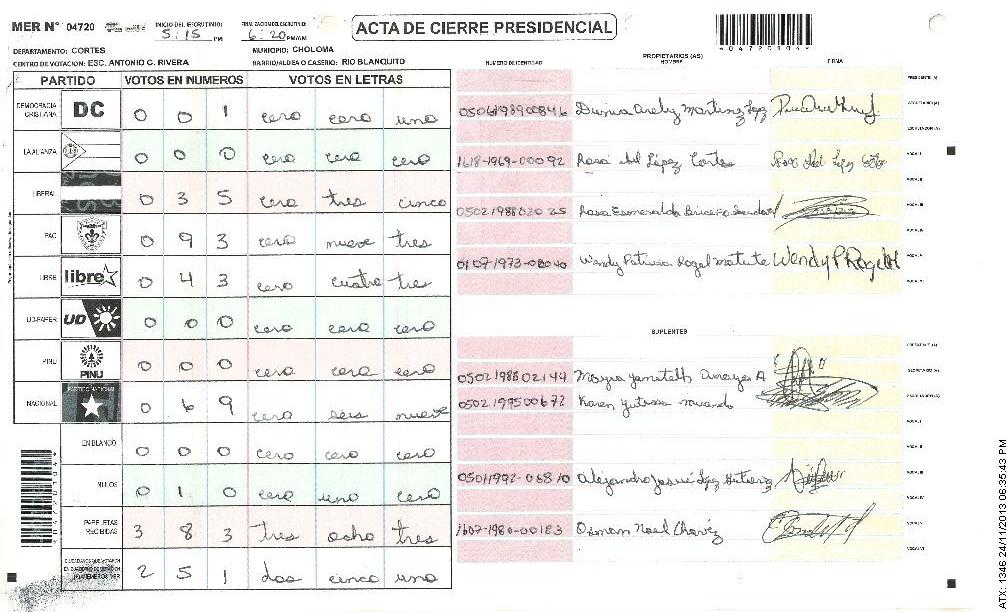 MER N° 04720
INICIO DEL ESCRUTINIO: 5:15 PM
FINALIZACION DEL ESCRUTINIO: 6:20 PM/AM
ACTA DE CIERRE PRESIDENCIAL
04720904
DEPARTAMENTO: CORTES
MUNICIPIO: CHOLOMA
CENTRO DE VOTACION: ESC. ANTONIO C. RIVERA
BARRIO/ALDEA O CASERIO: RIO BLANQUITO
PARTIDO VOTOS EN NUMEROS VOTOS EN LETRAS
DEMOCRACIA CRISTIANA DC 0 0 1 cero cero uno
LA ALIANZA 0 0 0 cero cero cero
LIBERAL 0 3 5 cero tres cinco
PAC 0 9 3 cero nueve tres
LIBRE libre 0 4 3 cero cuatro tres
UD-FAPER UD 0 0 0 cero cero cero
PINU PINU 0 0 0 cero cero cero
NACIONAL PARTIDO NACIONAL 0 6 9 cero seis nueve
EN BLANCO 0 0 0 cero cero cero
NULOS 0 1 0 cero uno cero
PAPELETAS RECIBIDAS 3 8 3 tres ocho tres
2 5 1 dos cinco uno
NUMERO DE IDENTIDAD
PROPIETARIOS (AS)
NOMBRE
FIRMA
PRESIDENTE (A)
SECRETARIO (A)
ESCRUTADOR (A)
VOCAL I
VOCAL II
VOCAL III
VOCAL IV
VOCAL V
Martinez
1618-1969-00092 Rosa López Cortes
Rosa Esmeralda
Wendy Patricia Rogel Matute Wendy P Rogel M
SUPLENTES
PRESIDENTE (A)
SECRETARIO (A)
ESCRUTADOR (A)
VOCAL I
VOCAL II
VOCAL III
VOCAL IV
VOCAL V
VOCAL VI
0502198602144 Amaya A
0502199500672 Karen
05011992-06810 Alejandro Josué
1607-1980-00183 Osman Noel Chavéz
ATX: 1346 24/11/2013 06:35:43 PM